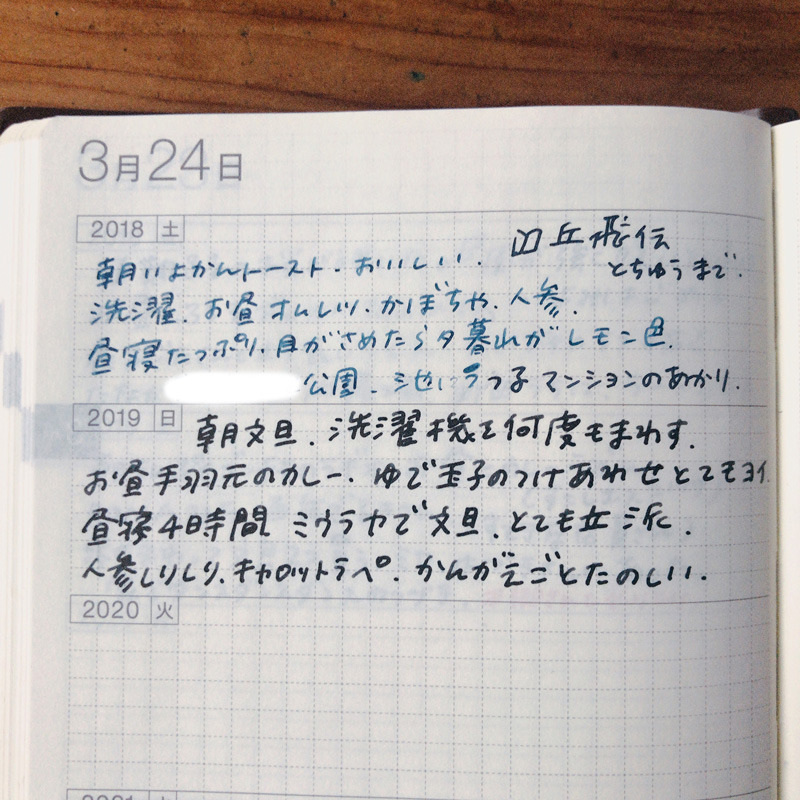 3月24日
2018 土
朝いよかんトースト. おいしい.
とちゅうまで.
洗濯. お昼オムレツ. かぼちゃ. 人参.
昼寝たっぷり. 目がさめたら夕暮れがレモン色.
公園. 池にうつる マンションのあかり.
2019 日
朝文旦. 洗濯機を何度もまわす.
お昼手羽元のカレー. ゆで玉子のつけあわせとてもヨイ.
昼寝4時間 ミウラヤで文旦. とても立派.
人参しりしり. キャロットラペ. かんがえごとたのしい.
2020 火
2021